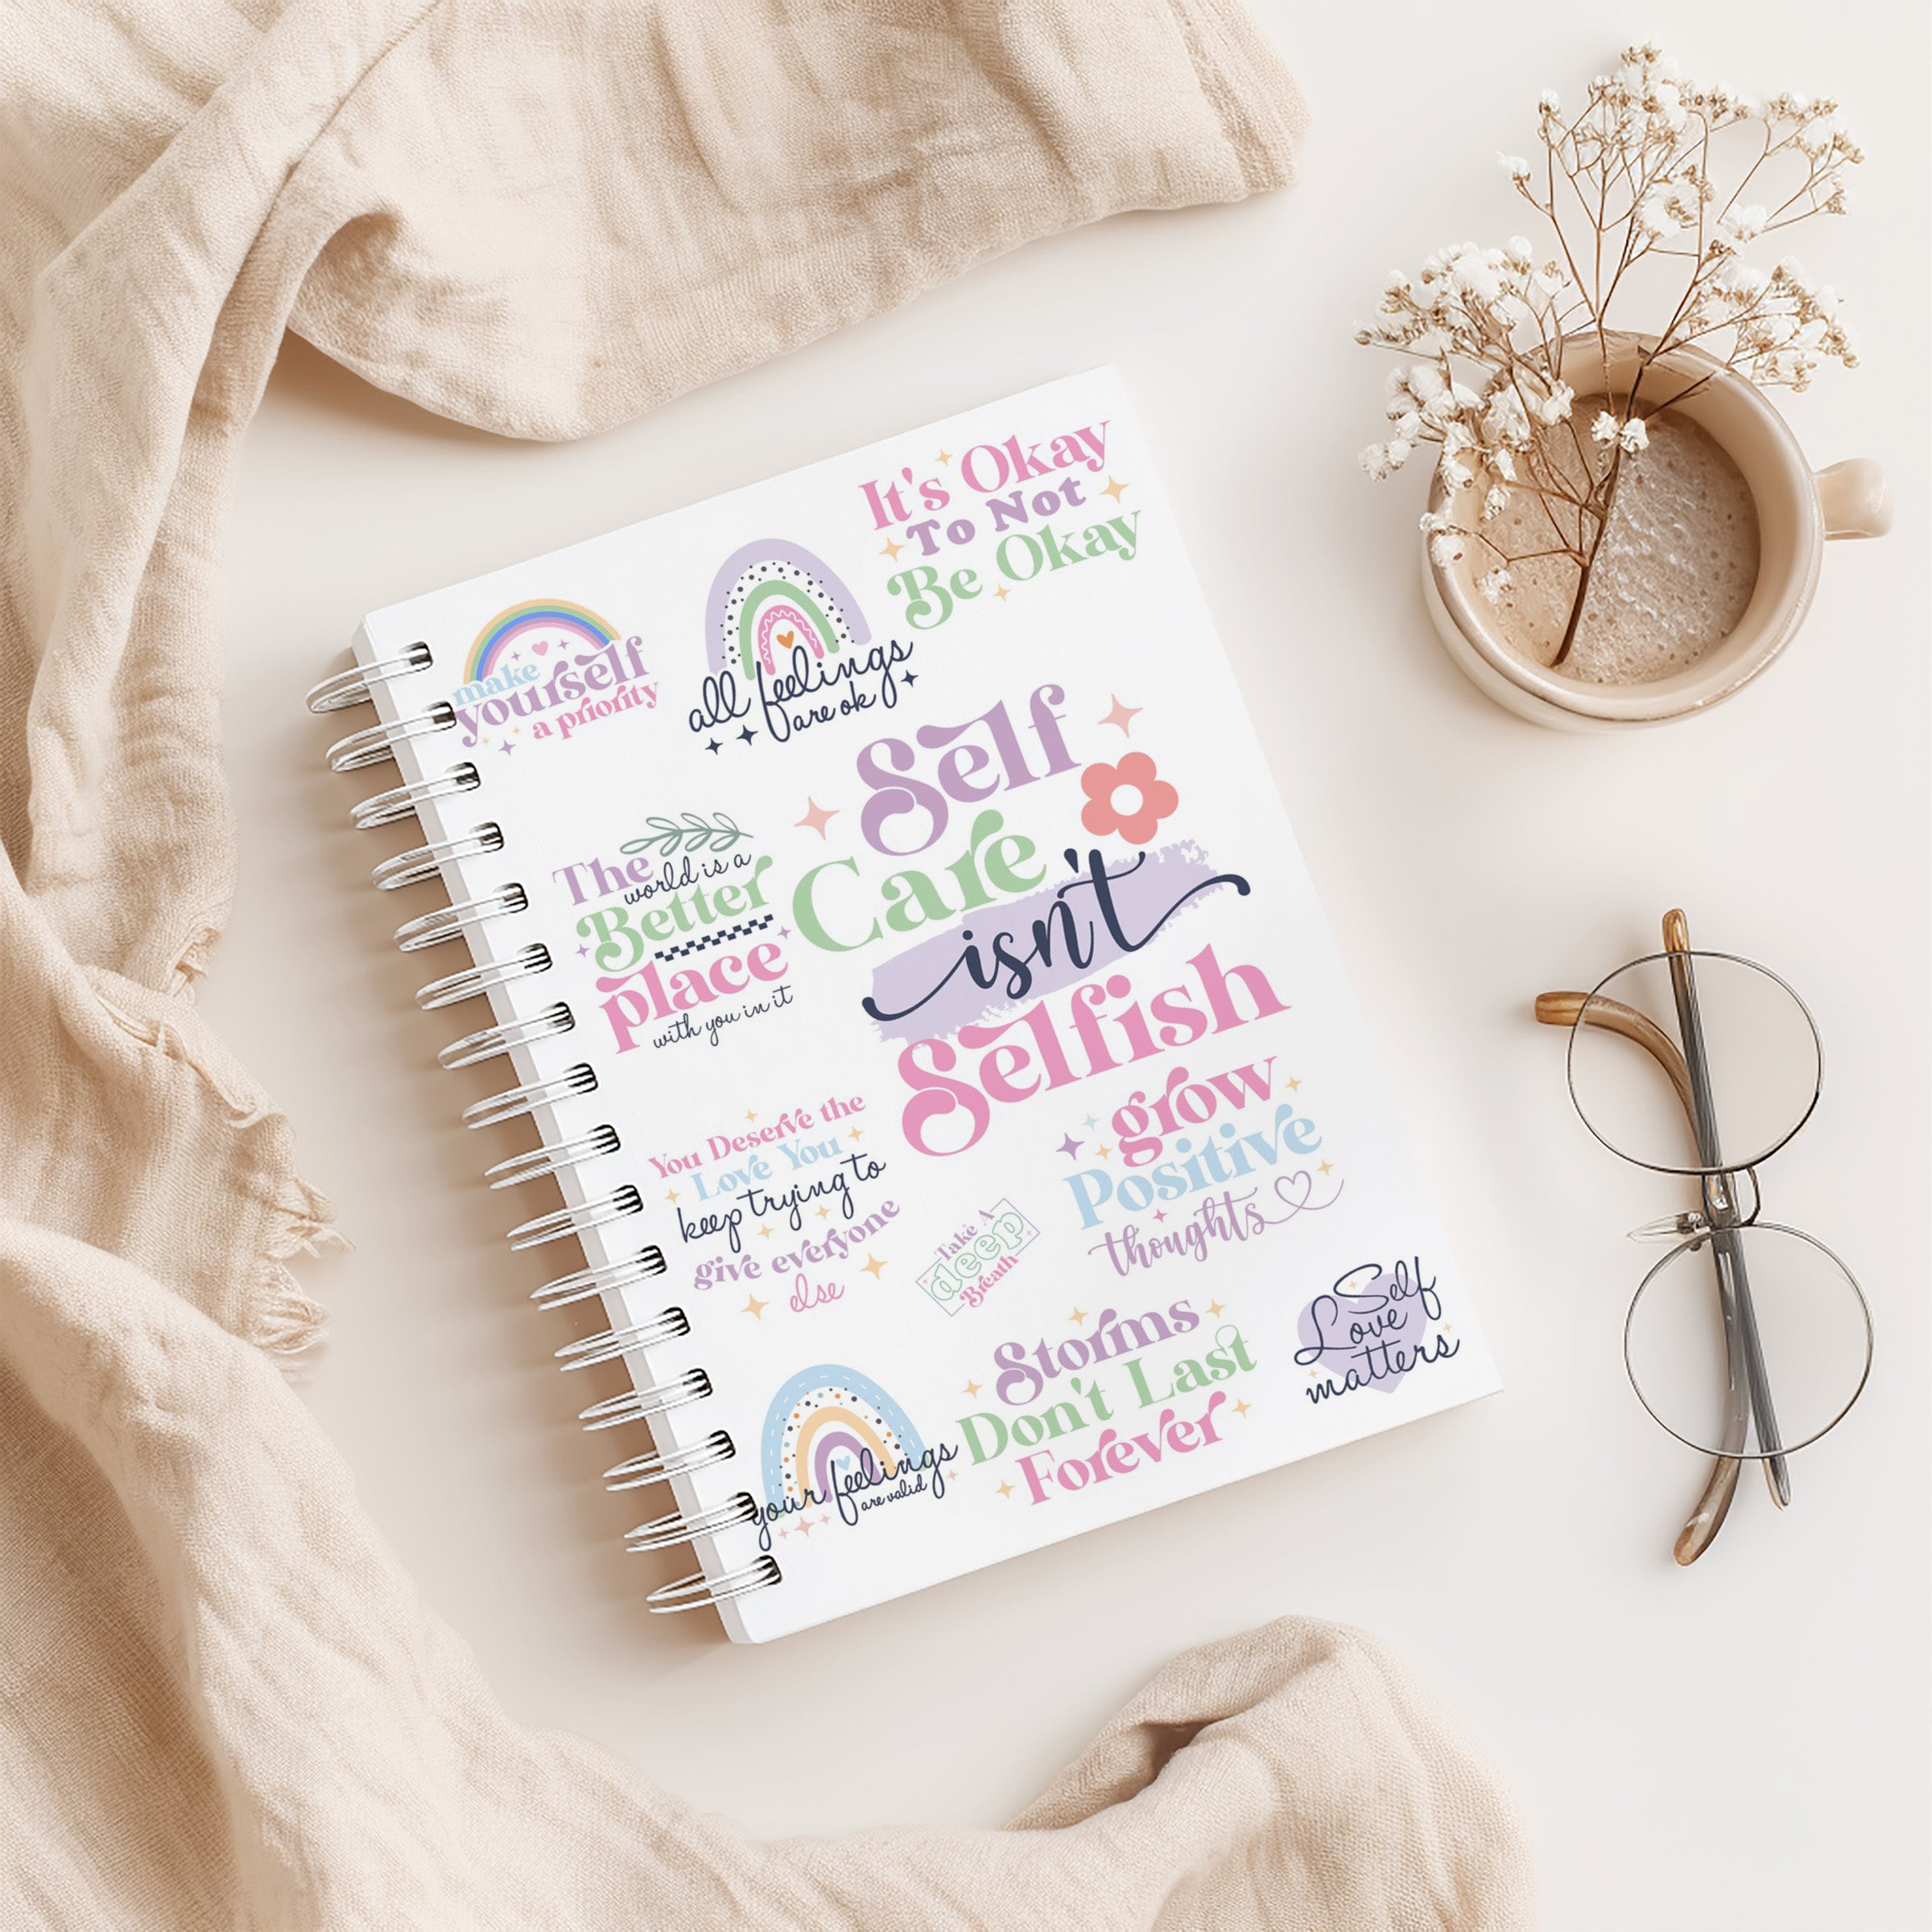 It's Okay
To Not
Be Okay
make
yourself
a priority
all feelings
are ok
Self
Care
isn't
Selfish
The
world is a
Better
place
with you in it
You Deserve the
Love You
keep trying to
give everyone
else
Take A
deep
Breath
grow
Positive
thoughts
Storms
Don't Last
Forever
Self
Love
matters
your feelings
are valid